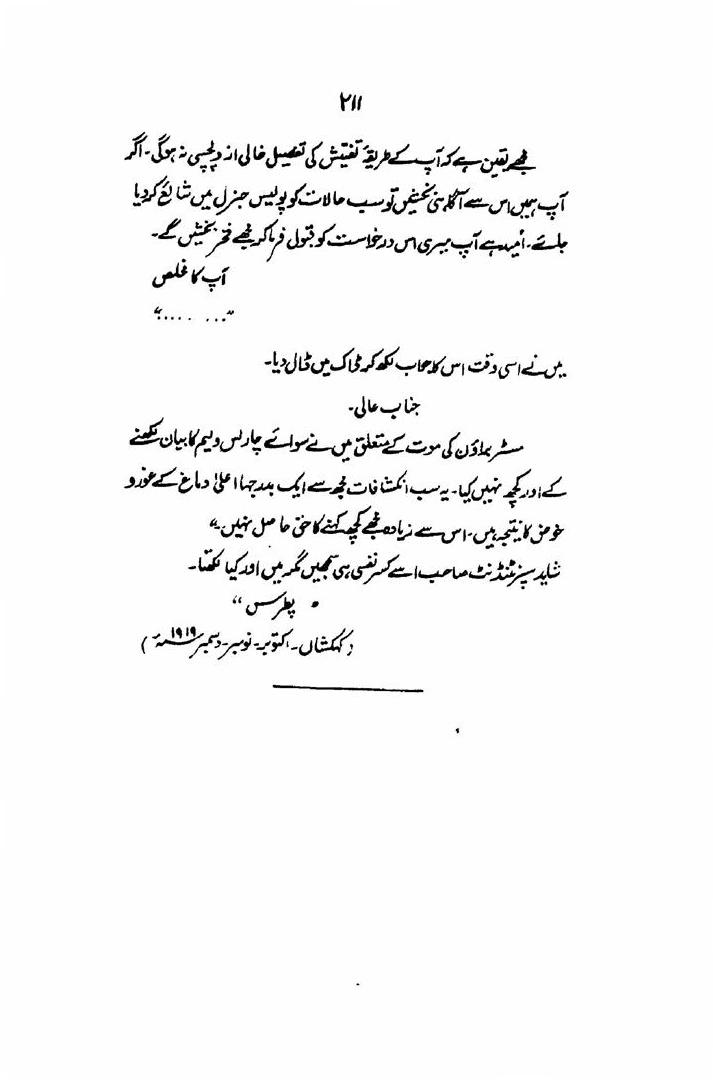 ۲۱۱
مجھے یقین ہے کہ آپ کے طریقۂ تفتیش کی تفصیل خالی از دلچسپی نہ ہوگی۔ اگر
آپ ہمیں اس سے آگاہی بخشیں تو سب حالات کو پولیس جنرل میں شائع کر دیا
جائے۔ اُمید ہے آپ میری اس درخواست کو قبول فرما کر مجھے فخر بخشیں گے۔
آپ کا مخلص
"..... ..."
میں نے اسی وقت اس کا جواب لکھ کر ڈاک میں ڈال دیا۔
جناب عالی۔
مسٹر براؤن کی موت کے متعلق میں نے سوائے چارلس ولیم کا بیان لکھنے
کے اور کچھ نہیں کیا۔ یہ سب انکشافات مجھ سے ایک بدرجہا اعلیٰ دماغ کے غور و
خوض کا نتیجہ ہیں۔ اس سے زیادہ مجھے کچھ کہنے کا حق حاصل نہیں۔"
شاید سپرنٹنڈنٹ صاحب اسے کسر نفسی ہی سمجھیں مگر میں اور کیا لکھتا۔
پطرس "
(کہکشاں۔ اکتوبر۔ نومبر۔ دسمبر ۱۹۱۹ء)